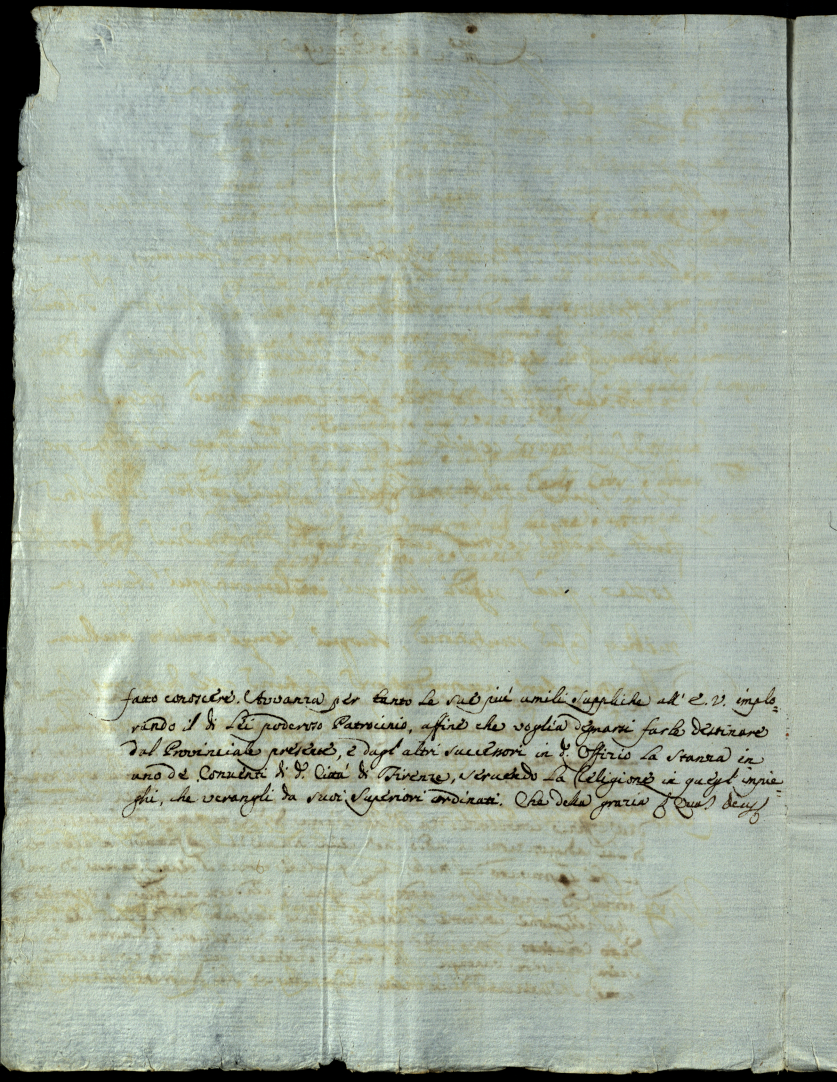 fatto conoscere. Avvanza per tanto le sue piu' umili suppliche all' E. V. implo=
rando il di Lei poderoso Patrocinio, affine che voglia degnarsi farle destinare
dal Provinciale presente, e dagl' altri successori in d.º Offizio la stanza in
uno de Conventi di d.ª Citta' di Firenze, servendo la Religione in quegl' impie=
ghi, che verangli da suoi Superiori ordinati. Che della grazia